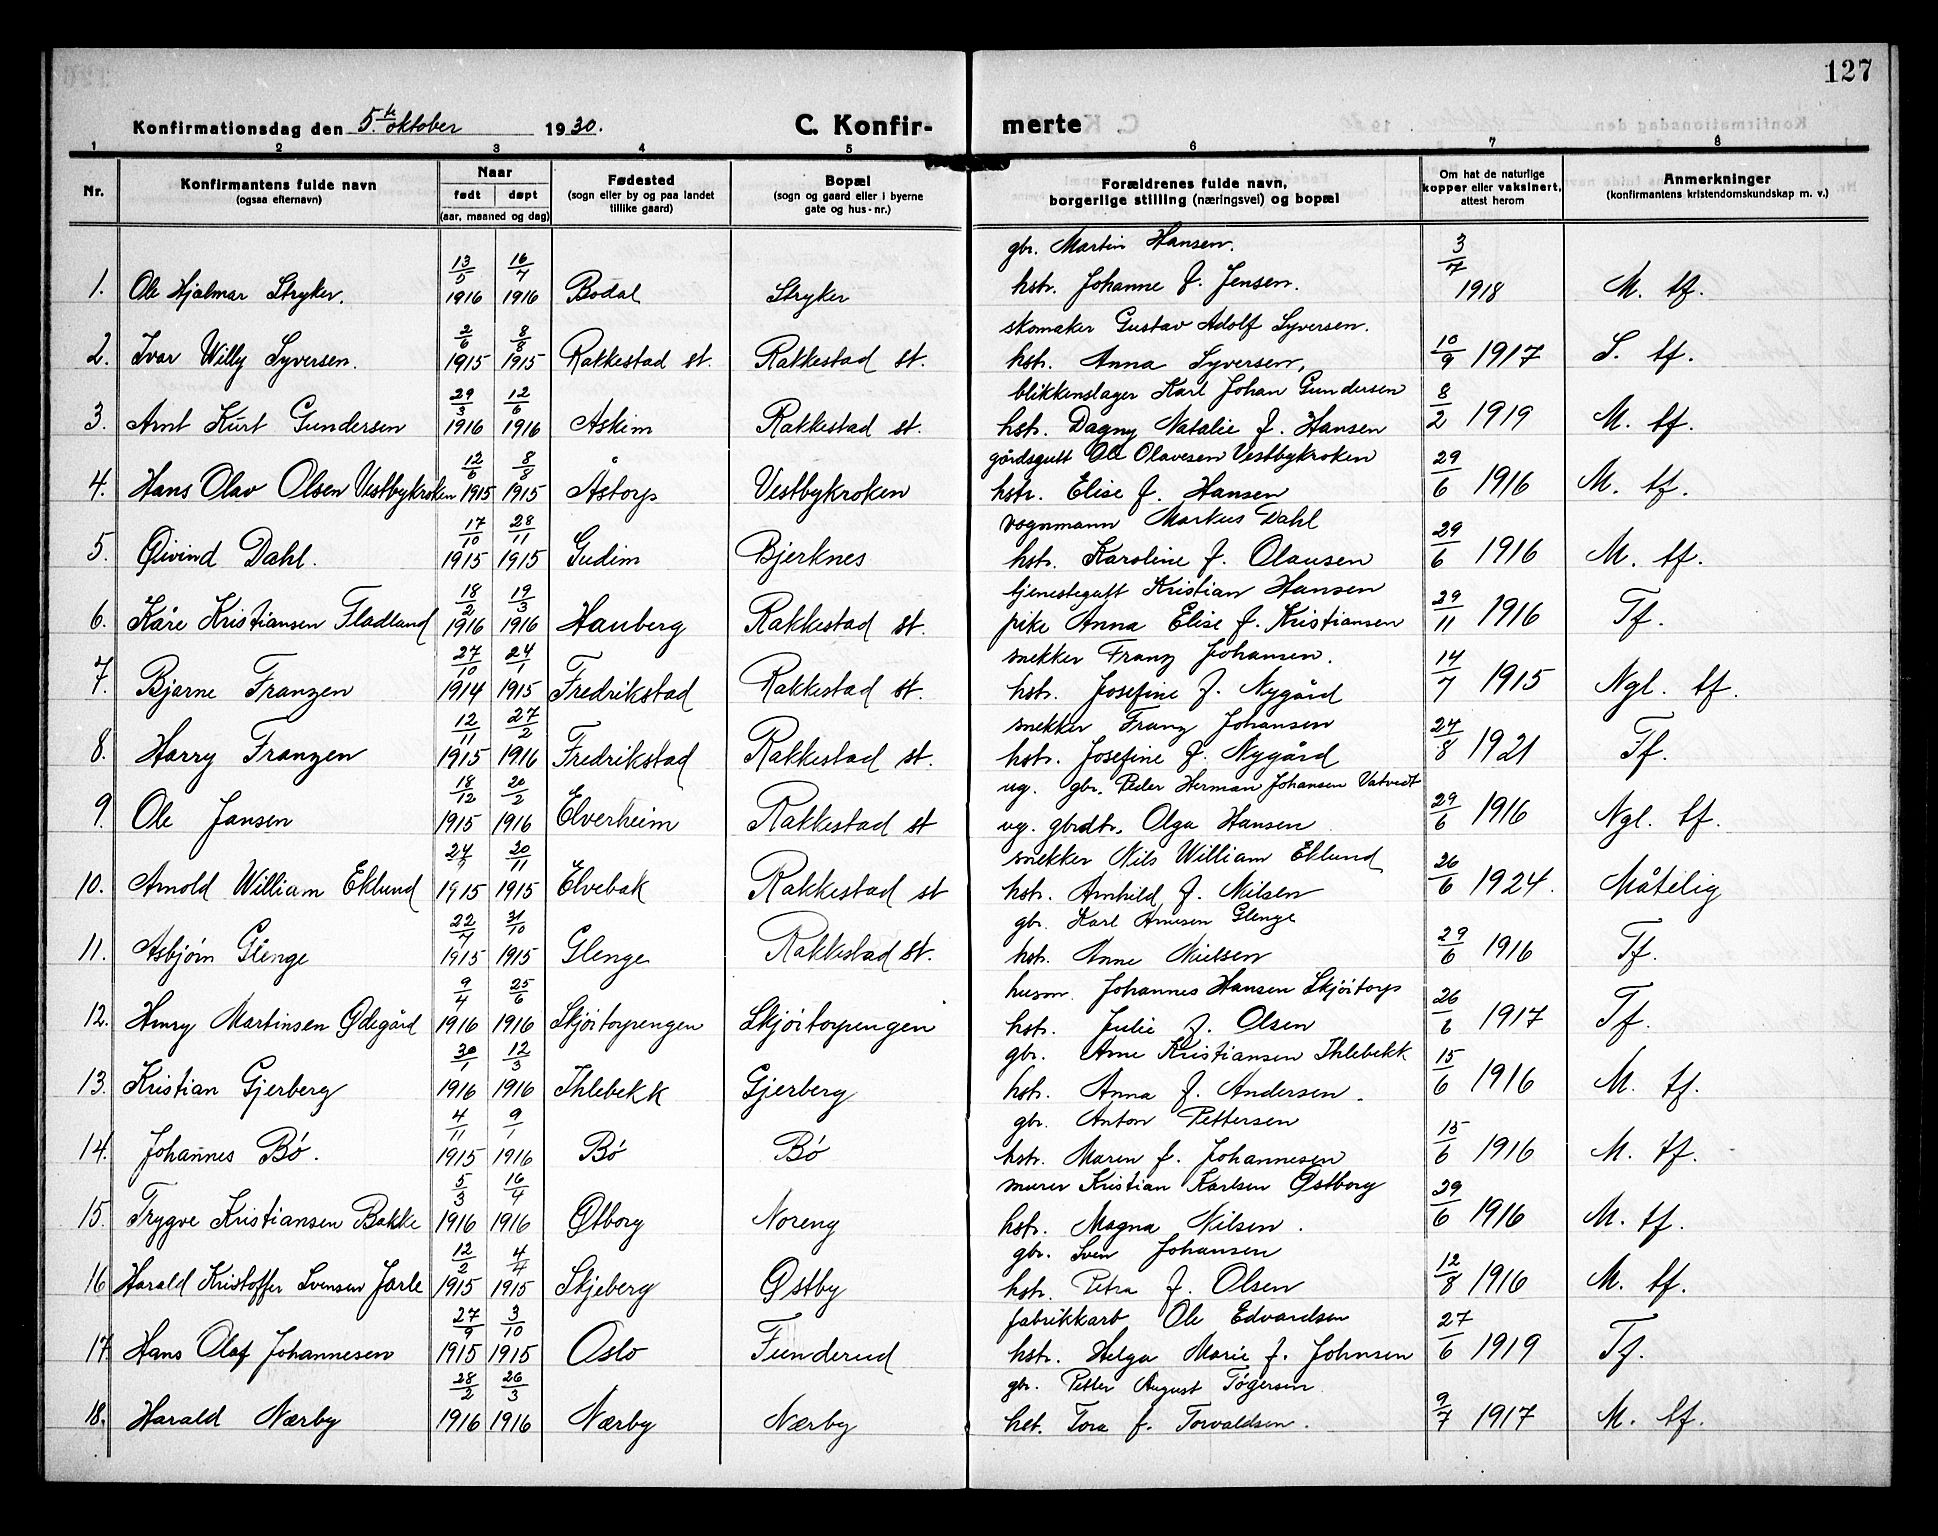 127
Konfirmationsdag den 5.te oktober 1930. C. Konfir- merte
1 2 3 4 5 6 7 8
Nr. Konfirmantens fulde navn (ogsaa efternavn) Naar født døpt (aar, maaned og dag) Fødested (sogn eller by og paa landet tillike gaard) Bopæl (sogn og gaard eller i byerne gate og hus-nr.) Forældrenes fulde navn, borgerlige stilling (næringsvei) og bopæl Om hat de naturlige kopper eller vaksinert, attest herom Anmerkninger (konfirmantens kristendomskundskap m. v.)
gbr. Martin Hansen.
1. Ole Hjalmar Stryker. 13/5 1916 16/7 1916 Bodal Stryker hstr. Johanne f. Jensen. 3/7 1918 M. tf.
skomaker Gustav Adolf Syversen.
2. Ivar Willy Syversen. 2/6 1915 8/8 1915 Rakkestad st. Rakkestad st. hstr. Anna Syversen, 10/9 1917 S. tf.
blikkenslager Karl Johan Gundersen
3. Arnt Kurt Gundersen 29/3 1916 12/6 1916 Askim Rakkestad st. hstr. Dagny Natalie f. Hansen 8/2 1919 M. tf.
gårdsgutt Ole Olavesen Vestbykroken
4. Hans Olav Olsen Vestbykroken 12/6 1915 8/8 1915 Åstorp Vestbykroken hstr. Elise f. Hansen 29/6 1916 M. tf.
vognmann Markus Dahl
5. Øivind Dahl. 17/10 1915 28/11 1915 Gudim Bjerknes hstr. Karoline f. Olausen 29/6 1916 M. tf.
tjenestegutt Kristian Hansen
6. Kåre Kristiansen Fladlund 18/2 1916 19/3 1916 Hauberg Rakkestad st. pike Anna Elise f. Kristiansen 29/11 1916 Tf.
snekker Franz Johansen.
7. Bjarne Franzen 27/10 1914 24/1 1915 Fredrikstad Rakkestad st. hstr. Josefine f. Nygård 14/7 1915 Ngl. tf.
snekker Franz Johansen
8. Harry Franzen 12/11 1915 27/2 1916 Fredrikstad Rakkestad st. hstr. Josefine f. Nygård 24/8 1921 Tf.
ug. gbr. Peder Herman Johansen Vatvedt
9. Ole Jansen 18/12 1915 20/2 1916 Elverheim Rakkestad st ug. gbrdtr. Olga Hansen 29/6 1916 Ngl. tf.
snekker Nils William Eklund
10. Arnold William Eklund 1915 20/11 1915 Elvebak Rakkestad st hstr. Arnhild f. Nilsen 26/6 1924. Måtelig
gbr. Karl Arnesen Glenge
11. Asbjørn Glenge 22/7 1915 31/10 1915 Glenge Rakkestad st. hstr. Anne Nielsen 29/6 1916 Tf.
husm. Johannes Hansen Skjøitorp
12. Henry Martinsen Ødegård 9/4 1916 25/6 1916 Skjøitorpengen Skjøitorpengen hstr. Julie f. Olsen 26/6 1917 Tf.
gbr. Arne Kristiansen Ihlebekk
13. Kristian Gjerberg 30/1 1916 12/3 1916 Ihlebekk Gjerberg hstr. Anna f. Andersen. 15/6 1916 M. tf.
gbr. Anton Pettersen
14. Johannes Bø. 4/11 1915 9/1 1916 Bø Bø hstr. Maren f. Johannesen 15/6 1916 M. tf.
murer Kristian Karlsen Østborg
15. Trygve Kristiansen Bakke 5/3 1916 16/4 1916 Øtborg Noreng hstr. Magna Nilsen. 29/6 1916 M. tf.
gbr. Sven Johansen
16 Harald Kristoffer Svensen Jarle 12/2 1915 4/4 1915 Skjeberg Østby hstr. Petra f. Olsen 12/8 1916 M. tf.
fabrikkarb Ole Edvardsen
17. Hans Olaf Johannesen 27/9 1915 3/10 1915 Oslo Funderud hstr. Helga Marie f. Johnsen 27/6 1919 Tf.
gbr. Petter August Tøgersen
18. Harald Nærby 28/2 1916 26/3 1916 Nærby Nærby hst. Tora f. Torvaldsen. 9/7 1917 M. tf.